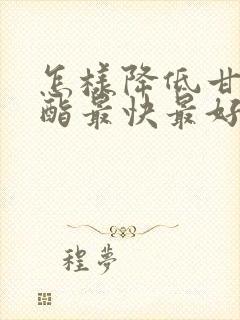 怎樣降低甘
酯最快最好
程夢